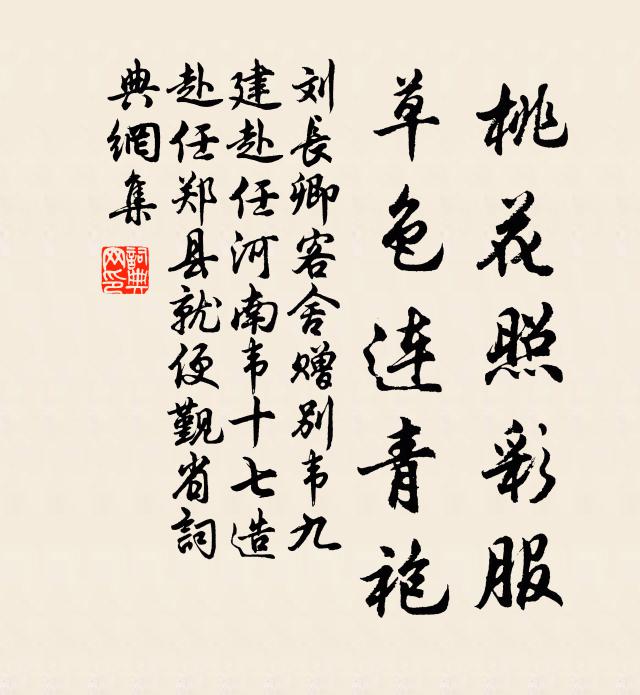 桃花照彩服
草色连青袍
刘长卿客舍赠别韦九
建赴任河南韦十七造
赴任郑县就便觐省詞
典網集
詞典
网印